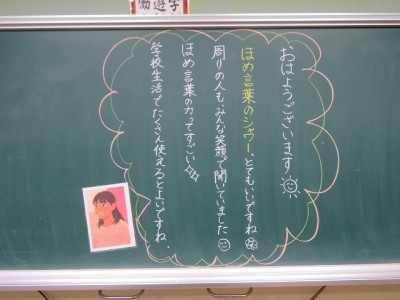 働遊学
おはようございます!
ほめ言葉のシャワー、とてもいいですね
周りの人も、みんな笑顔で聞いていました
ほめ言葉の力ってすごい!
学校生活でたくさん使えるとよいですね。